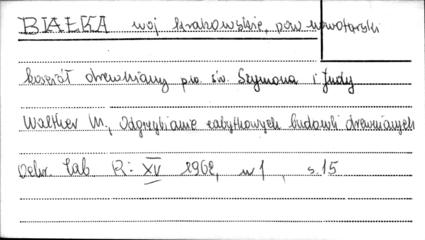 BIAŁKA woj krakowskie, pow nowotarski
kościół drewniany p.w. św. Szymona i Judy
Walther M., Odgrzybianie zabytkowych budowli drewnianych
Ochr. Zab R: XV 1962, n 1, s. 15